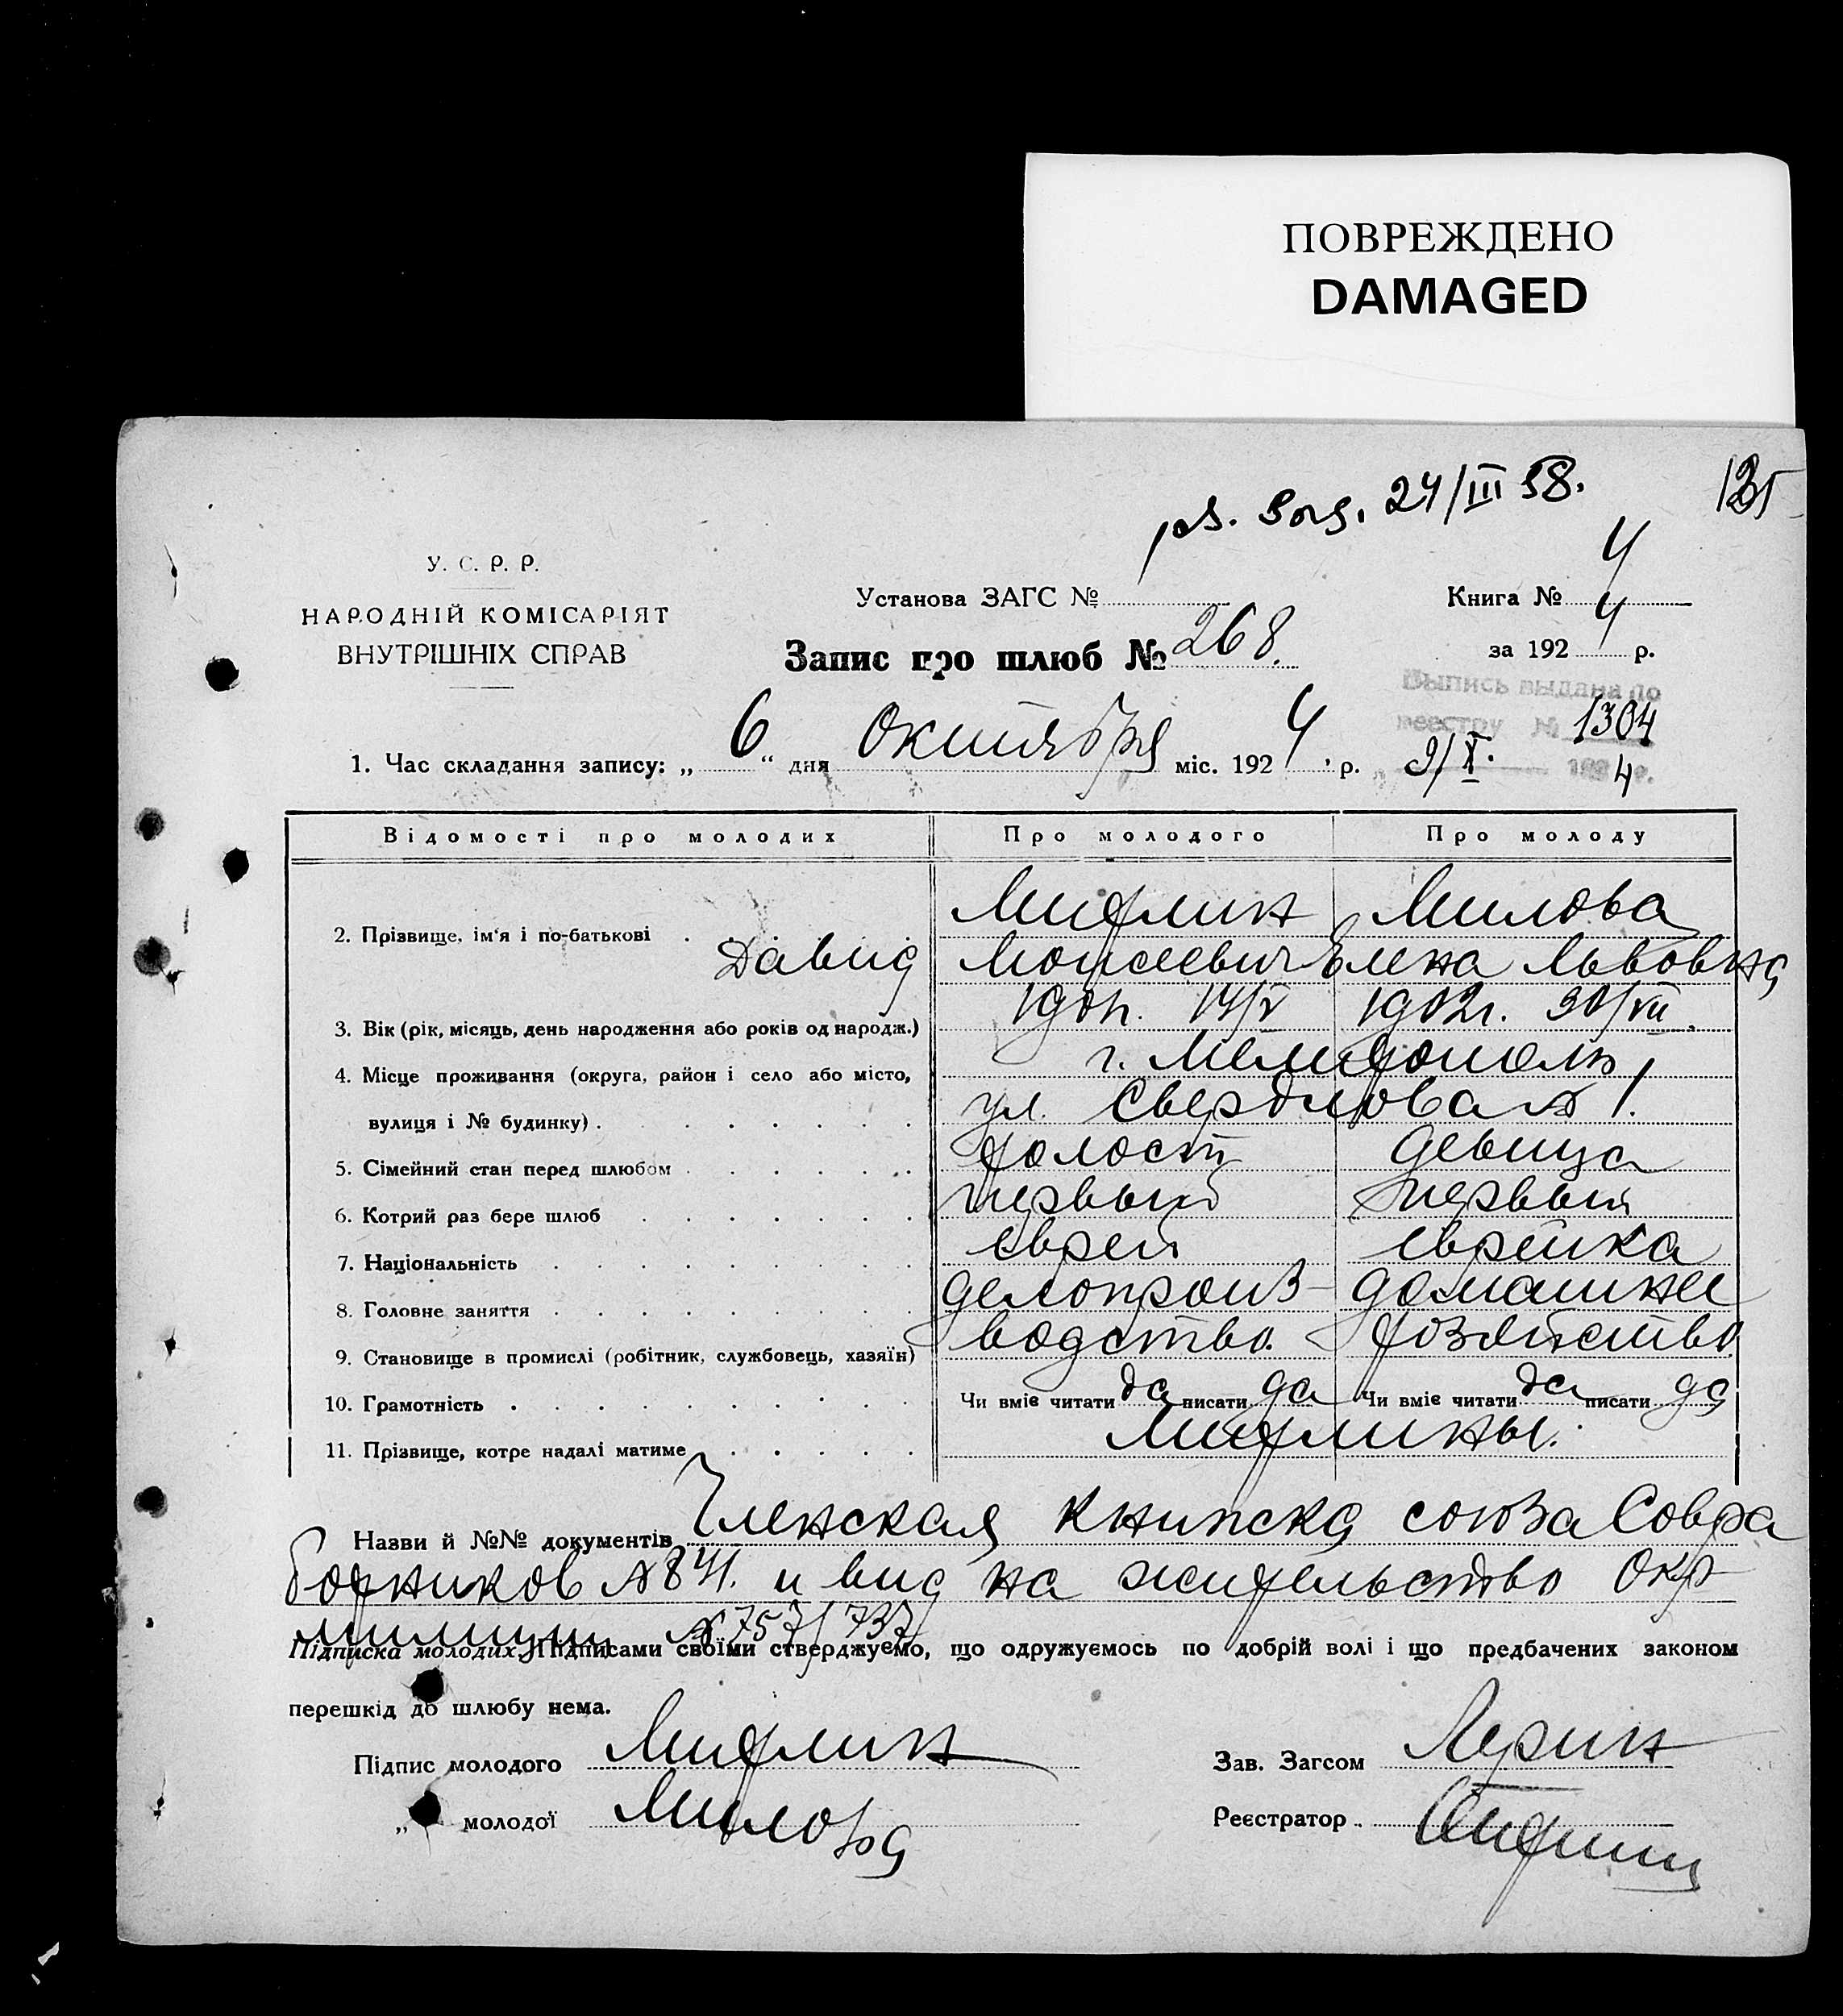 ПОВРЕЖДЕНО
DAMAGED
24/III 58.
У. С. Р. Р.
НАРОДНІЙ КОМІСАРІЯТ
ВНУТРІШНІХ СПРАВ
Установа ЗАГС №
Книга № 4
Запис про шлюб № 268.
за 1924 р.
Выпись выдана по
реестру № 1304
9/X. 1924 г.
1. Час складання запису: „6“ дня Октября міс. 1924 р.
Відомості про молодих Про молодого Про молоду
2. Прізвище, ім'я і по-батькові Мифлин Милова
Давид Моисеевич Елена Львовна
3. Вік (рік, місяць, день народження або років од народж.) 1901г. 14/V 1902г. 30/VII
4. Місце проживання (округа, район і село або місто, г. Мелитополь
вулиця і № будинку) ул. Свердлова № 1.
5. Сімейний стан перед шлюбом холост девица
6. Котрий раз бере шлюб первый первый
7. Національність еврей еврейка
8. Головне заняття делопроиз- домашнее
9. Становище в промислі (робітник, службовець, хазяїн) водство. хозяйство
10. Грамотність Чи вміє читати да писати да Чи вміє читати да писати да
11. Прізвище, котре надалі матиме Мифлины.
Назви й №№ документів Членская книжка союза Совра
ботников № 841. и вид на жительство Окр
милиции № 757/737
Підписка молодих. Підписами своїми стверджуємо, що одружуємось по добрій волі і що предбачених законом
перешкід до шлюбу нема.
Підпис молодого Мифлин Зав. Загсом
„ молодої Милова Реєстратор